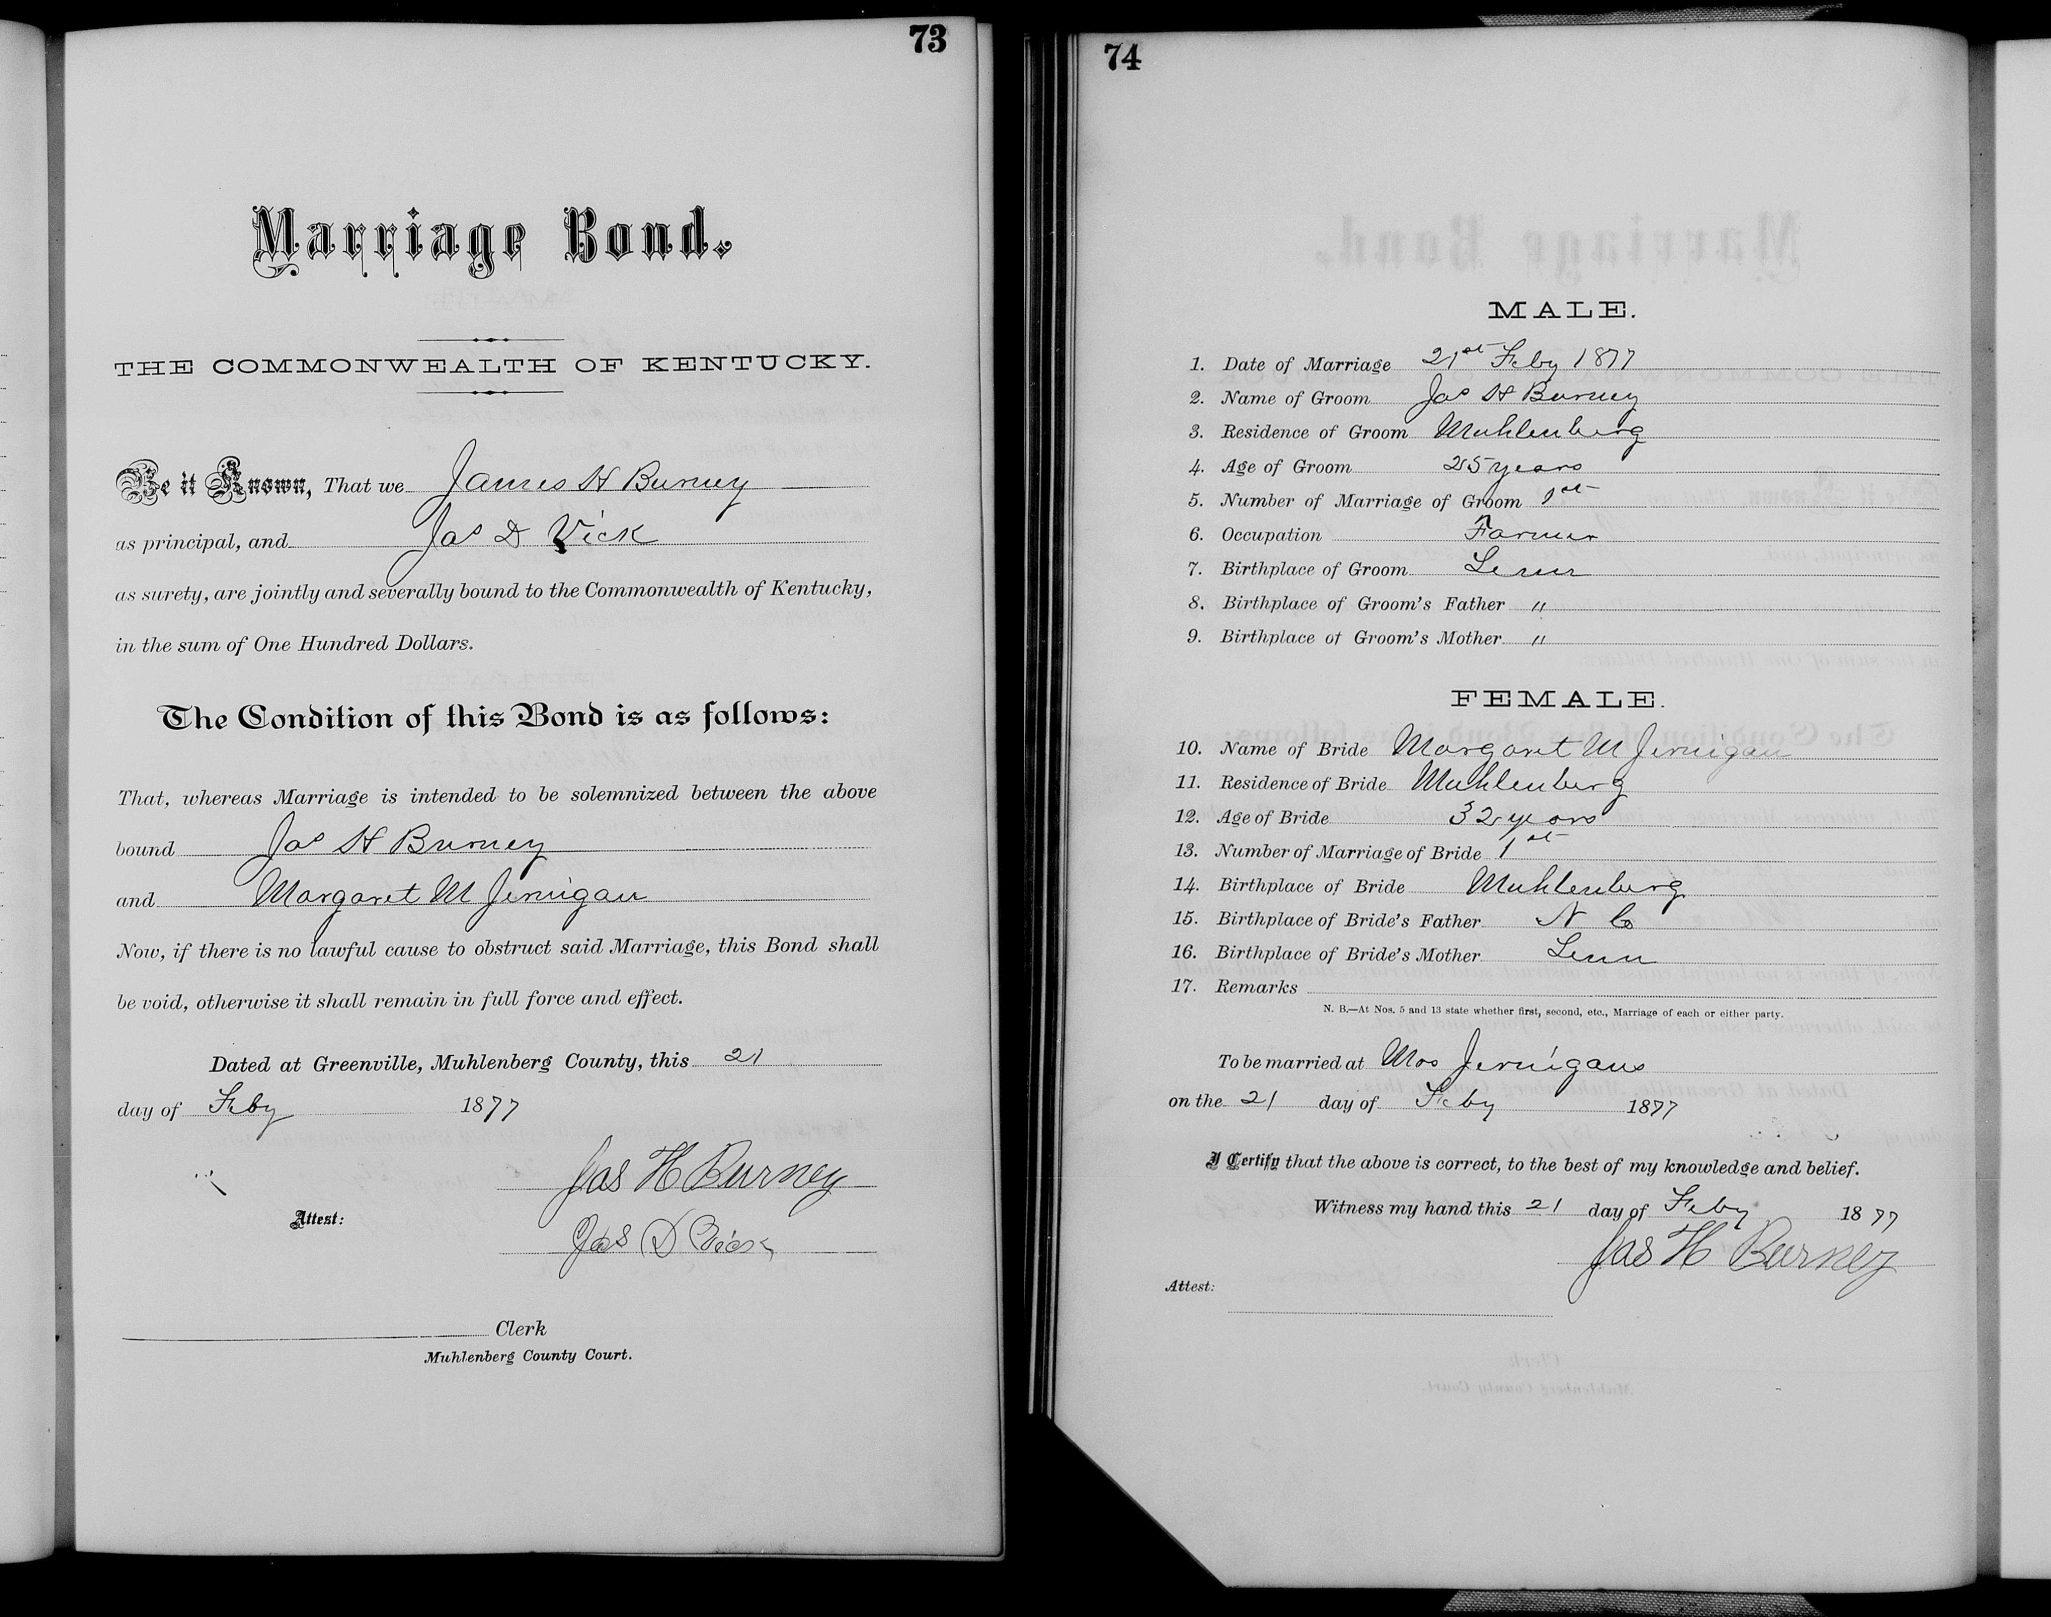 73
Marriage Bond.
THE COMMONWEALTH OF KENTUCKY.
Be it Known, That we James H Burney
as principal, and Jas D Vick
as surety, are jointly and severally bound to the Commonwealth of Kentucky,
in the sum of One Hundred Dollars.
The Condition of this Bond is as follows:
That, whereas Marriage is intended to be solemnized between the above
bound Jas H Burney
and Margaret M Jernigan
Now, if there is no lawful cause to obstruct said Marriage, this Bond shall
be void, otherwise it shall remain in full force and effect.
Dated at Greenville, Muhlenberg County, this 21
day of Feby 1877
Jas H Burney
Attest:
Jas D Vick
Clerk
Muhlenberg County Court.
74
MALE.
1. Date of Marriage 21st Feby 1877
2. Name of Groom Jas H Burney
3. Residence of Groom Muhlenberg
4. Age of Groom 25 years
5. Number of Marriage of Groom 1st
6. Occupation Farmer
7. Birthplace of Groom Tenn
8. Birthplace of Groom's Father "
9. Birthplace of Groom's Mother "
FEMALE.
10. Name of Bride Margaret M Jernigan
11. Residence of Bride Muhlenberg
12. Age of Bride 32 years
13. Number of Marriage of Bride 1st
14. Birthplace of Bride Muhlenberg
15. Birthplace of Bride's Father N C
16. Birthplace of Bride's Mother Tenn
17. Remarks
N. B.—At Nos. 5 and 13 state whether first, second, etc., Marriage of each or either party.
To be married at Mrs Jernigans
on the 21 day of Feby 1877
I Certify that the above is correct, to the best of my knowledge and belief.
Witness my hand this 21 day of Feby 1877
Jas H Burney
Attest: